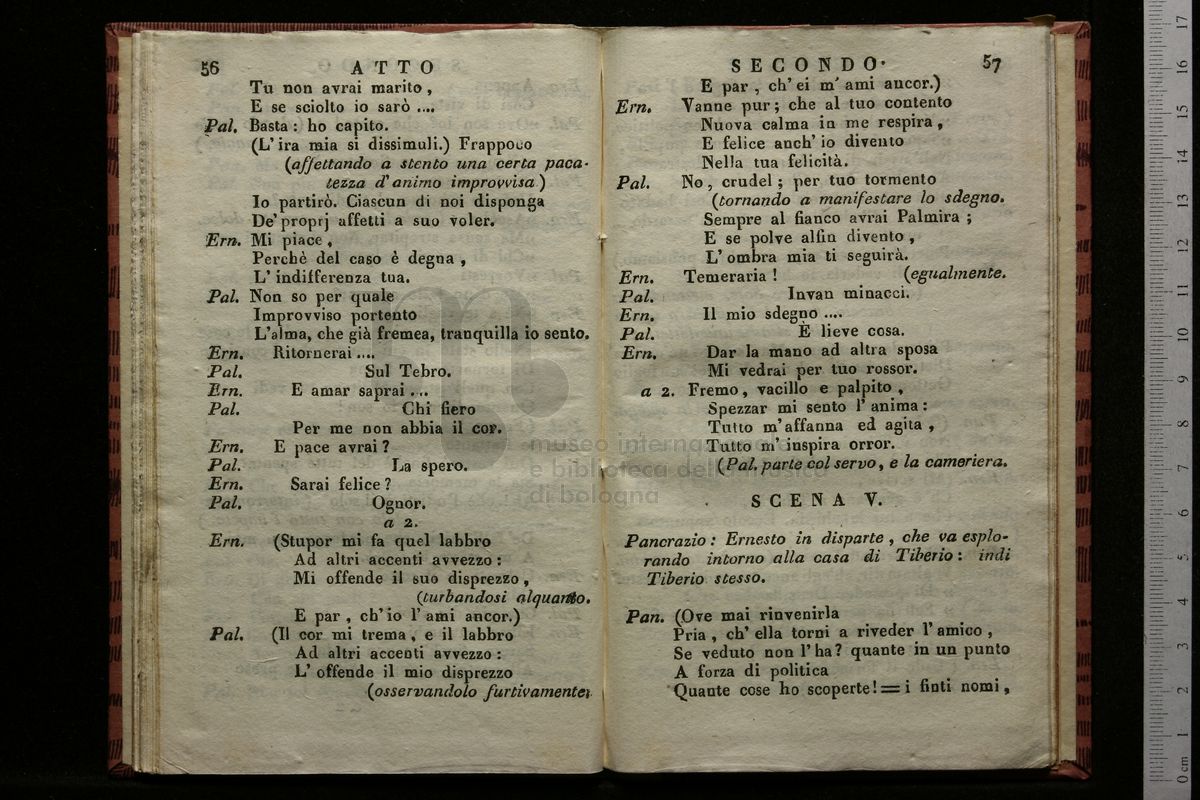 56 ATTO
Tu non avrai marito,
E se sciolto io sarò ....
Pal. Basta: ho capito.
(L'ira mia si dissimuli.) Frappoco
(affettando a stento una certa paca-
tezza d'animo improvvisa)
Io partirò. Ciascun di noi disponga
De' proprj affetti a suo voler.
Ern. Mi piace,
Perchè del caso è degna,
L'indifferenza tua.
Pal. Non so per quale
Improvviso portento
L'alma, che già fremea, tranquilla io sento.
Ern. Ritornerai ....
Pal. Sul Tebro.
Ern. E amar saprai ...
Pal. Chi fiero
Per me non abbia il cor.
Ern. E pace avrai?
Pal. La spero.
Ern. Sarai felice?
Pal. Ognor.
a 2.
Ern. (Stupor mi fa quel labbro
Ad altri accenti avvezzo:
Mi offende il suo disprezzo,
(turbandosi alquanto.
E par, ch'io l'ami ancor.)
Pal. (Il cor mi trema, e il labbro
Ad altri accenti avvezzo:
L'offende il mio disprezzo
(osservandolo furtivamente;
SECONDO. 57
E par, ch'ei m'ami ancor.)
Ern. Vanne pur; che al tuo contento
Nuova calma in me respira,
E felice anch'io divento
Nella tua felicità.
Pal. No, crudel; per tuo tormento
(tornando a manifestare lo sdegno.
Sempre al fianco avrai Palmira;
E se polve alfin divento,
L'ombra mia ti seguirà.
Ern. Temeraria! (egualmente.
Pal. Invan minacci.
Ern. Il mio sdegno ....
Pal. È lieve cosa.
Ern. Dar la mano ad altra sposa
Mi vedrai per tuo rossor.
a 2. Fremo, vacillo e palpito,
Spezzar mi sento l'anima:
Tutto m'affanna ed agita,
Tutto m'inspira orror.
(Pal. parte col servo, e la cameriera.
SCENA V.
Pancrazio: Ernesto in disparte, che va esplo-
rando intorno alla casa di Tiberio: indi
Tiberio stesso.
Pan. (Ove mai rinvenirla
Pria, ch'ella torni a riveder l'amico,
Se veduto non l'ha? quante in un punto
A forza di politica
Quante cose ho scoperte!=i finti nomi,
museo internazionale
e biblioteca della musica
di bologna
0 cm 1 2 3 4 5 6 7 8 9 10 11 12 13 14 15 16 17